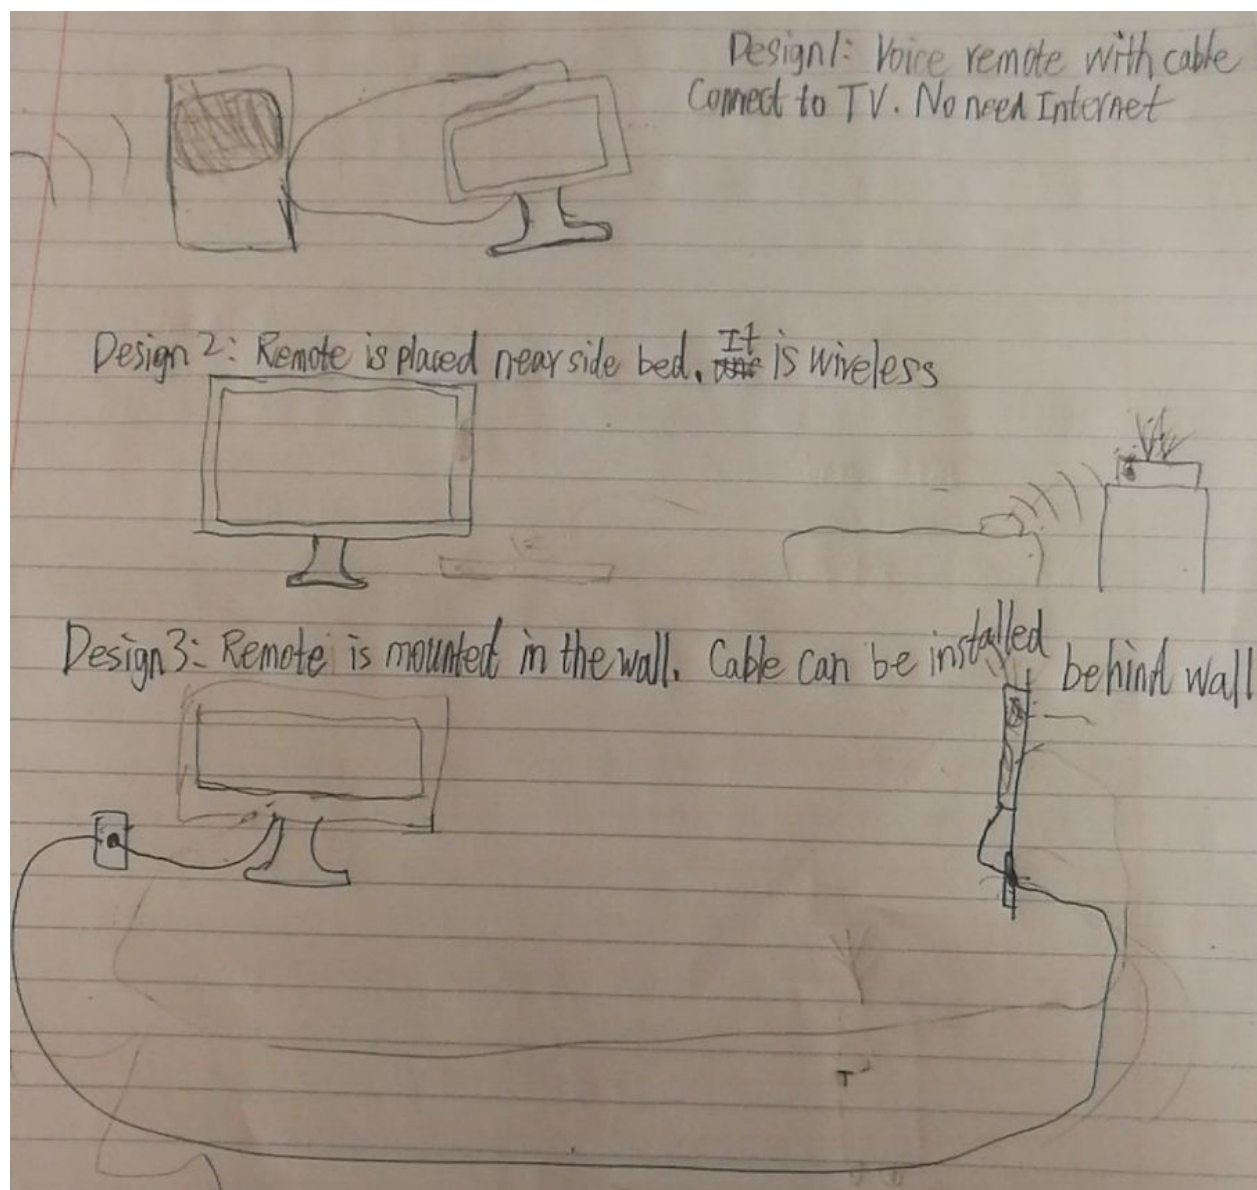 Design1: Voice remote with cable
Connect to TV. No need Internet
Design 2: Remote is placed near side bed. It is wireless
Design 3: Remote is mounted in the wall. Cable can be installed behind wall